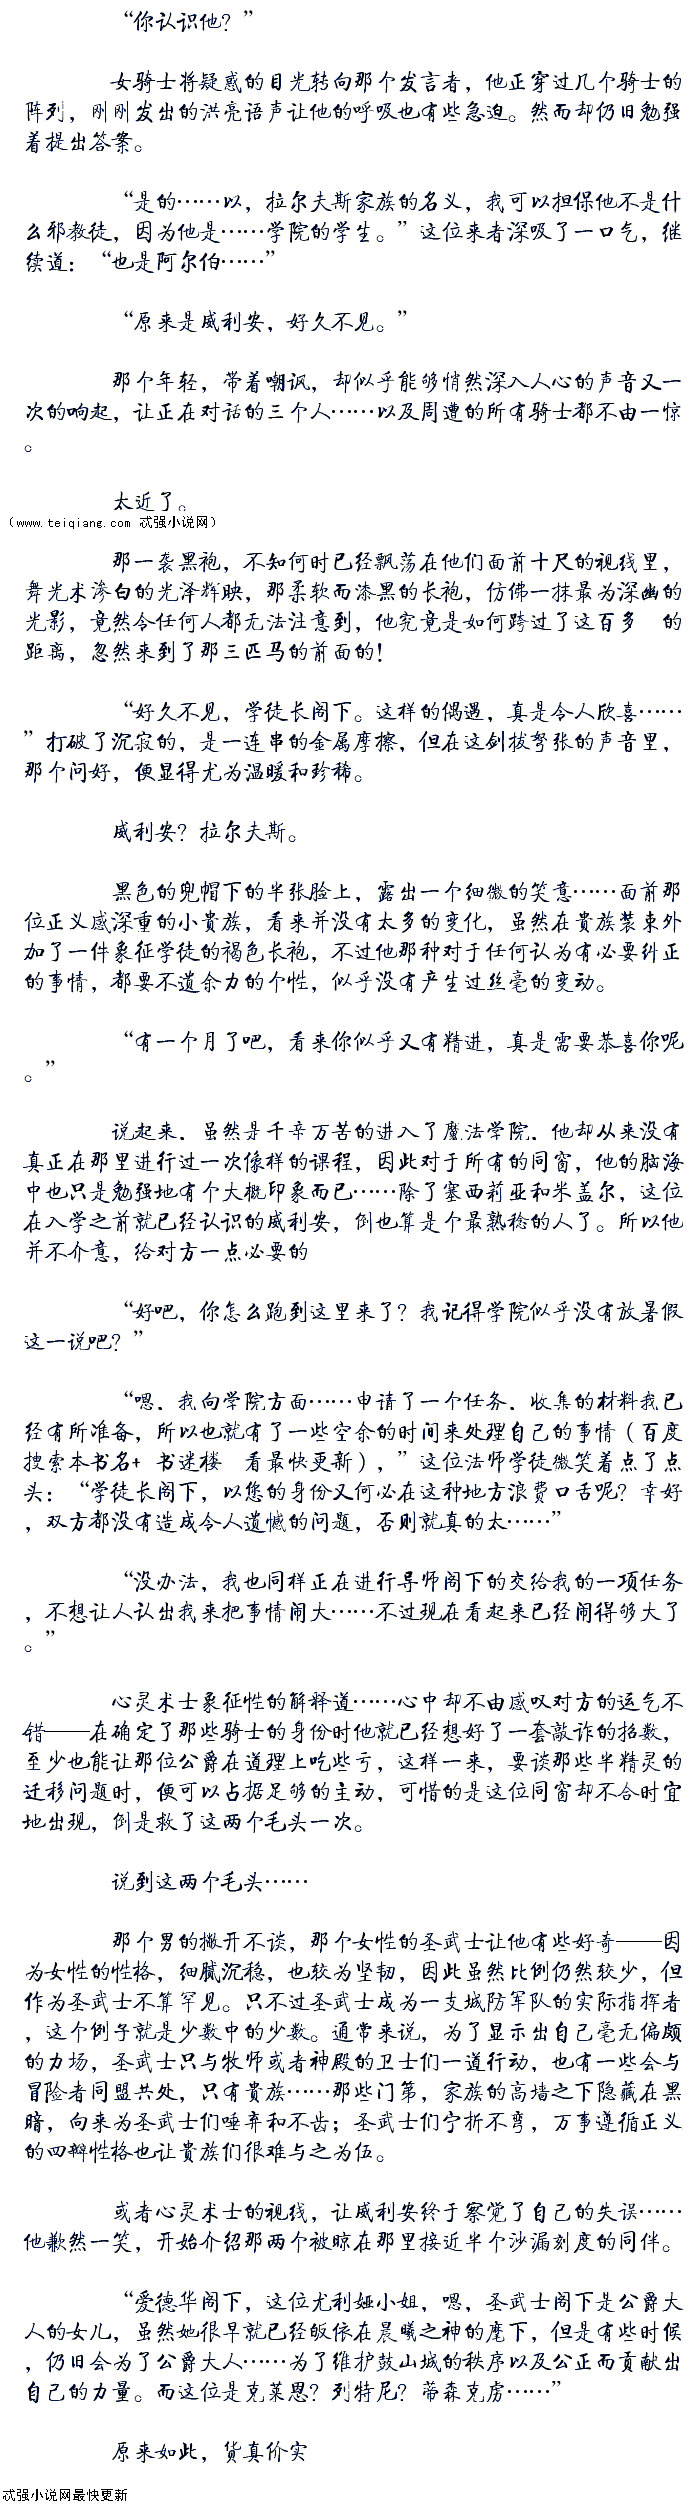 “你认识他？”
女骑士将疑惑的目光转向那个发言者，他正穿过几个骑士的
阵列，刚刚发出的洪亮语声让他的呼吸也有些急迫。然而却仍旧勉强
着提出答案。
“是的……以，拉尔夫斯家族的名义，我可以担保他不是什
么邪教徒，因为他是……学院的学生。”这位来者深吸了一口气，继
续道：“也是阿尔伯……”
“原来是威利安，好久不见。”
那个年轻，带着嘲讽，却似乎能够悄然深入人心的声音又一
次的响起，让正在对话的三个人……以及周遭的所有骑士都不由一惊
。
太近了。
（www.teiqiang.com 忒强小说网）
那一袭黑袍，不知何时已经飘荡在他们面前十尺的视线里，
舞光术渗白的光泽辉映，那柔软而漆黑的长袍，仿佛一抹最为深幽的
光影，竟然令任何人都无法注意到，他究竟是如何跨过了这百多　的
距离，忽然来到了那三匹马的前面的！
“好久不见，学徒长阁下。这样的偶遇，真是令人欣喜……
”打破了沉寂的，是一连串的金属摩擦，但在这剑拔弩张的声音里，
那个问好，便显得尤为温暖和珍稀。
威利安？拉尔夫斯。
黑色的兜帽下的半张脸上，露出一个细微的笑意……面前那
位正义感深重的小贵族，看来并没有太多的变化，虽然在贵族装束外
加了一件象征学徒的褐色长袍，不过他那种对于任何认为有必要纠正
的事情，都要不遗余力的个性，似乎没有产生过丝毫的变动。
“有一个月了吧，看来你似乎又有精进，真是需要恭喜你呢
。”
说起来，虽然是千辛万苦的进入了魔法学院，他却从来没有
真正在那里进行过一次像样的课程，因此对于所有的同窗，他的脑海
中也只是勉强地有个大概印象而已……除了塞西莉亚和米盖尔，这位
在入学之前就已经认识的威利安，倒也算是个最熟稔的人了。所以他
并不介意，给对方一点必要的
“好吧，你怎么跑到这里来了？我记得学院似乎没有放暑假
这一说吧？”
“嗯，我向学院方面……申请了一个任务，收集的材料我已
经有所准备，所以也就有了一些空余的时间来处理自己的事情（百度
搜索本书名+　书迷楼　看最快更新），”这位法师学徒微笑着点了点
头：“学徒长阁下，以您的身份又何必在这种地方浪费口舌呢？幸好
，双方都没有造成令人遗憾的问题，否则就真的太……”
“没办法，我也同样正在进行导师阁下的交给我的一项任务
，不想让人认出我来把事情闹大……不过现在看起来已经闹得够大了
。”
心灵术士象征性的解释道……心中却不由感叹对方的运气不
错——在确定了那些骑士的身份时他就已经想好了一套敲诈的招数，
至少也能让那位公爵在道理上吃些亏，这样一来，要谈那些半精灵的
迁移问题时，便可以占据足够的主动，可惜的是这位同窗却不合时宜
地出现，倒是救了这两个毛头一次。
说到这两个毛头……
那个男的撇开不谈，那个女性的圣武士让他有些好奇——因
为女性的性格，细腻沉稳，也较为坚韧，因此虽然比例仍然较少，但
作为圣武士不算罕见。只不过圣武士成为一支城防军队的实际指挥者
，这个例子就是少数中的少数。通常来说，为了显示出自己毫无偏颇
的力场，圣武士只与牧师或者神殿的卫士们一道行动，也有一些会与
冒险者同盟共处，只有贵族……那些门第，家族的高墙之下隐藏在黑
暗，向来为圣武士们唾弃和不齿；圣武士们宁折不弯，万事遵循正义
的四瓣性格也让贵族们很难与之为伍。
或者心灵术士的视线，让威利安终于察觉了自己的失误……
他歉然一笑，开始介绍那两个被晾在那里接近半个沙漏刻度的同伴。
“爱德华阁下，这位尤利娅小姐，嗯，圣武士阁下是公爵大
人的女儿，虽然她很早就已经皈依在晨曦之神的麾下，但是有些时候
，仍旧会为了公爵大人……为了维护鼓山城的秩序以及公正而贡献出
自己的力量。而这位是克莱恩？列特尼？蒂森克虏……”
原来如此，货真价实
忒强小说网最快更新